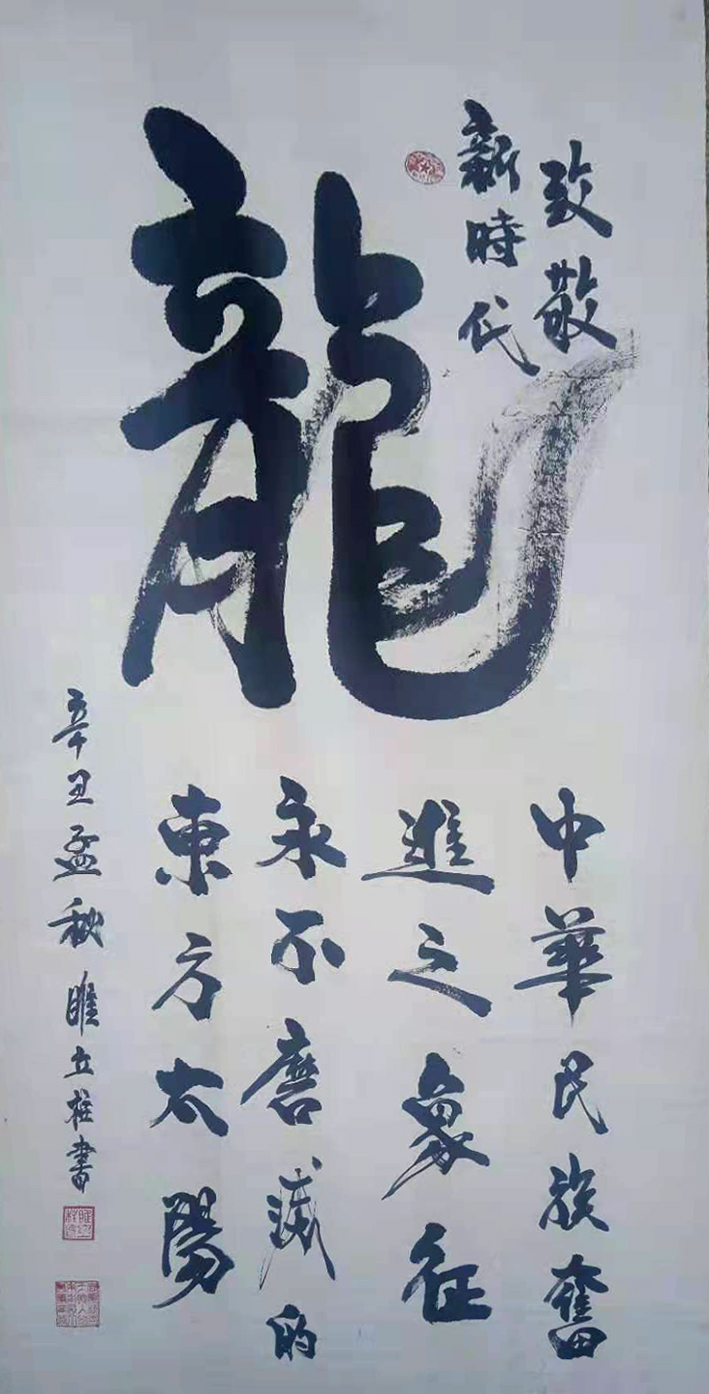 致敬
新時代
龍
中華民族奮
進之象征
永不磨滅的
東方太陽
辛丑孟秋 睢立柱書